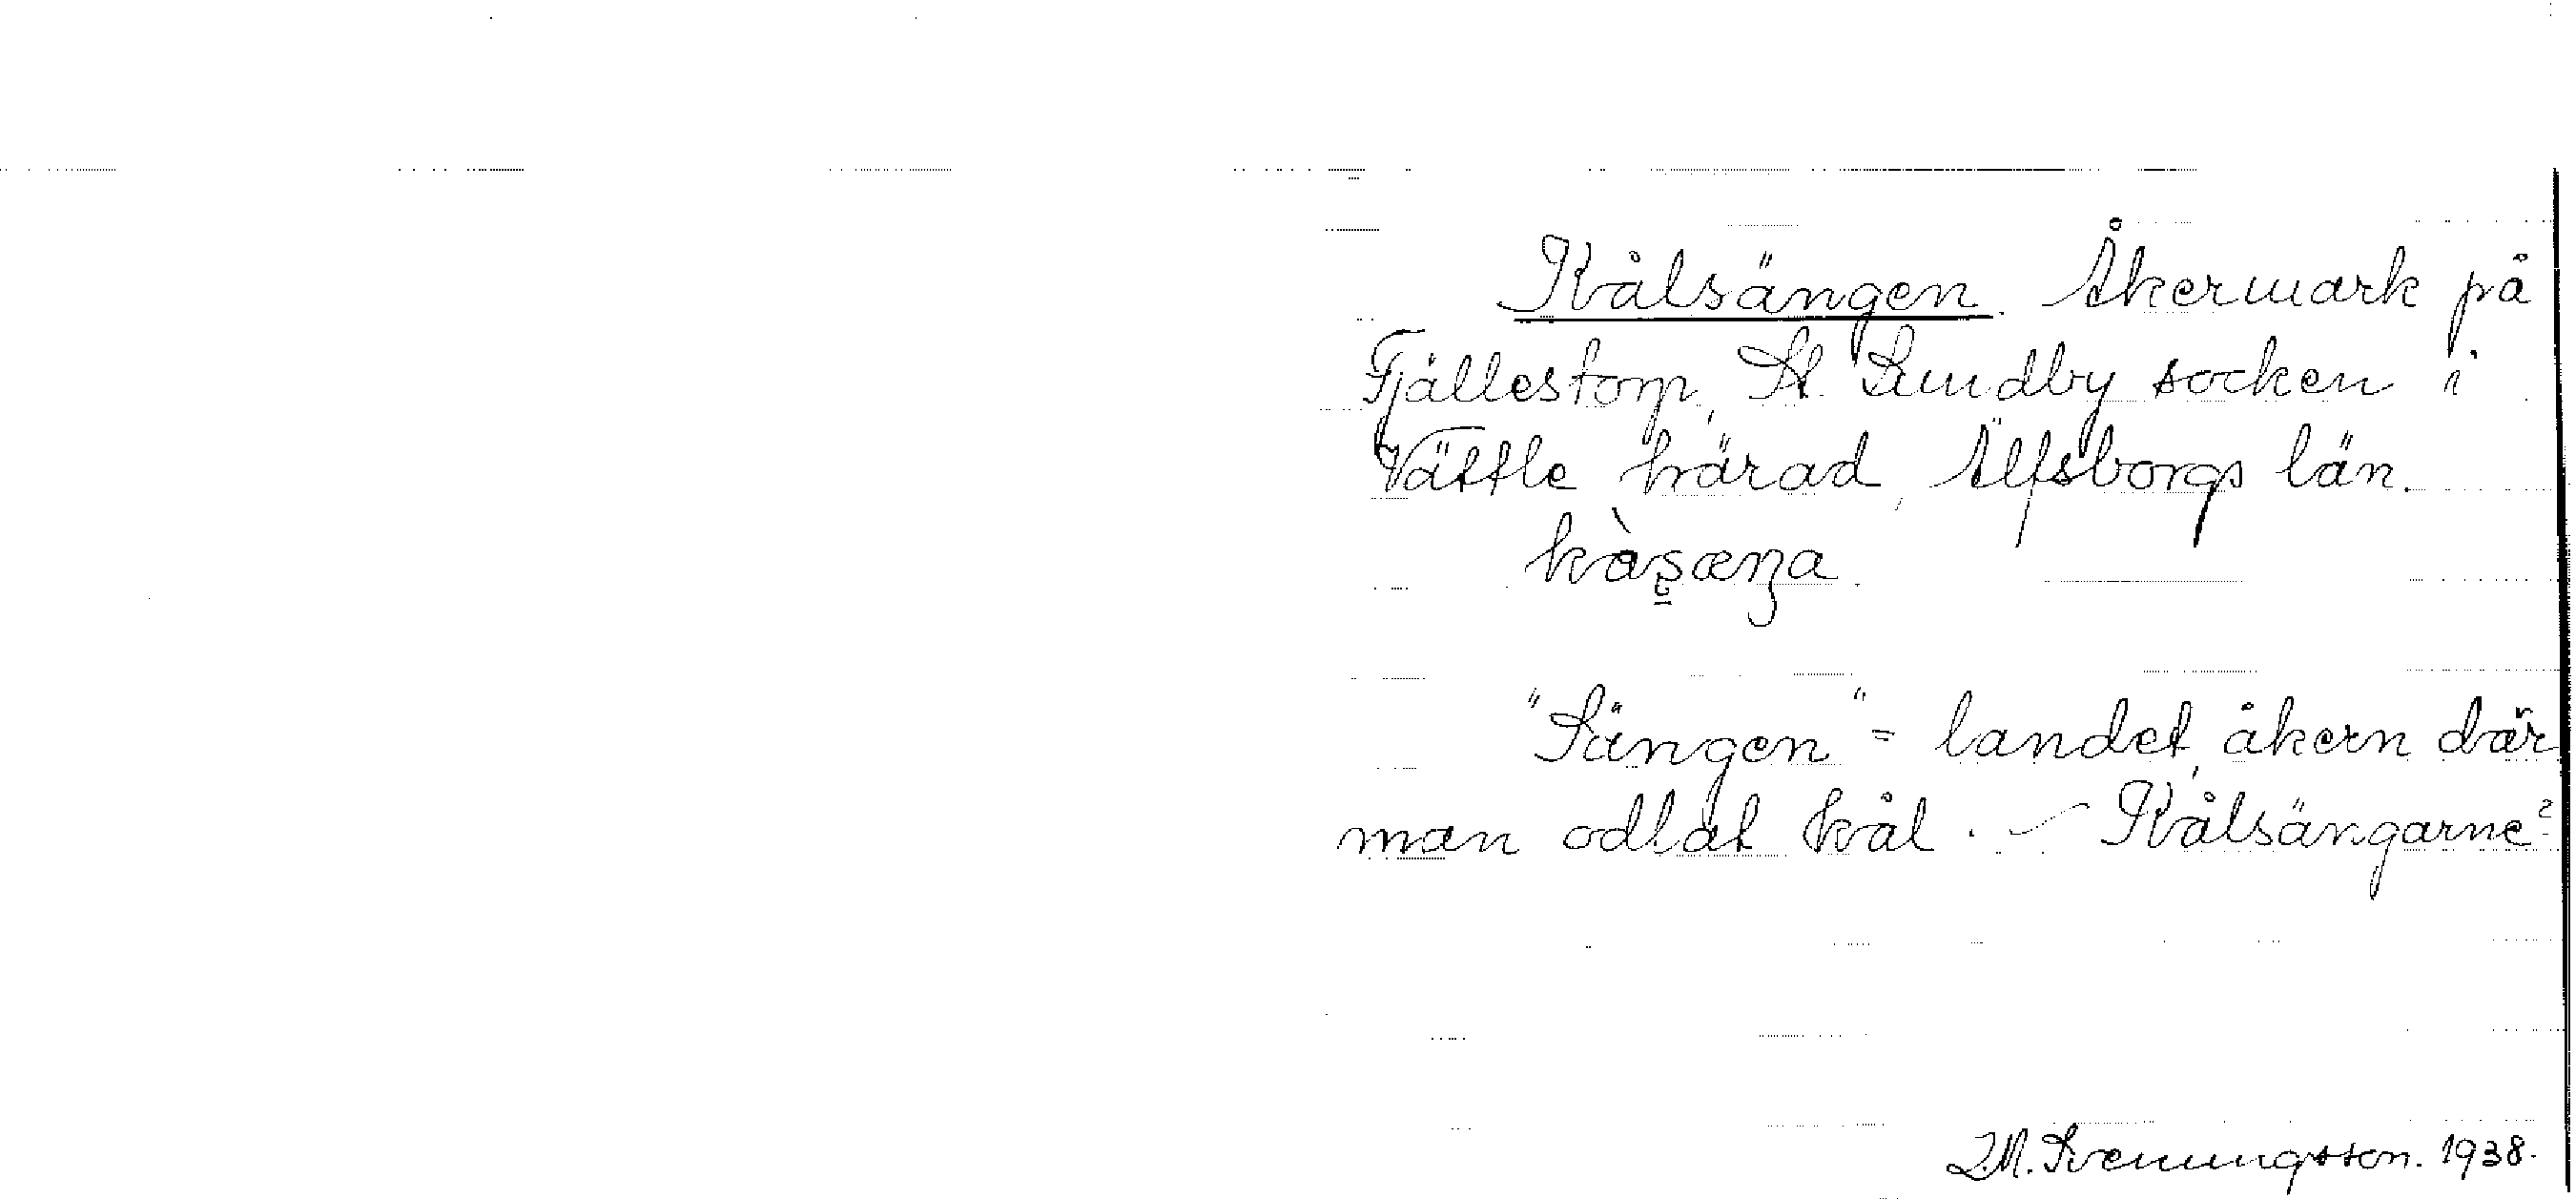 Kålsängen. Åkermark på
Fjällestorp, St. Lundby socken i
Vättle härad, Älfsborgs län.
kàsæŋa.
"Sängen" = landet, åkern där
man odlat kål. – Kålsängarne?
J.M. Svenungsson. 1938.